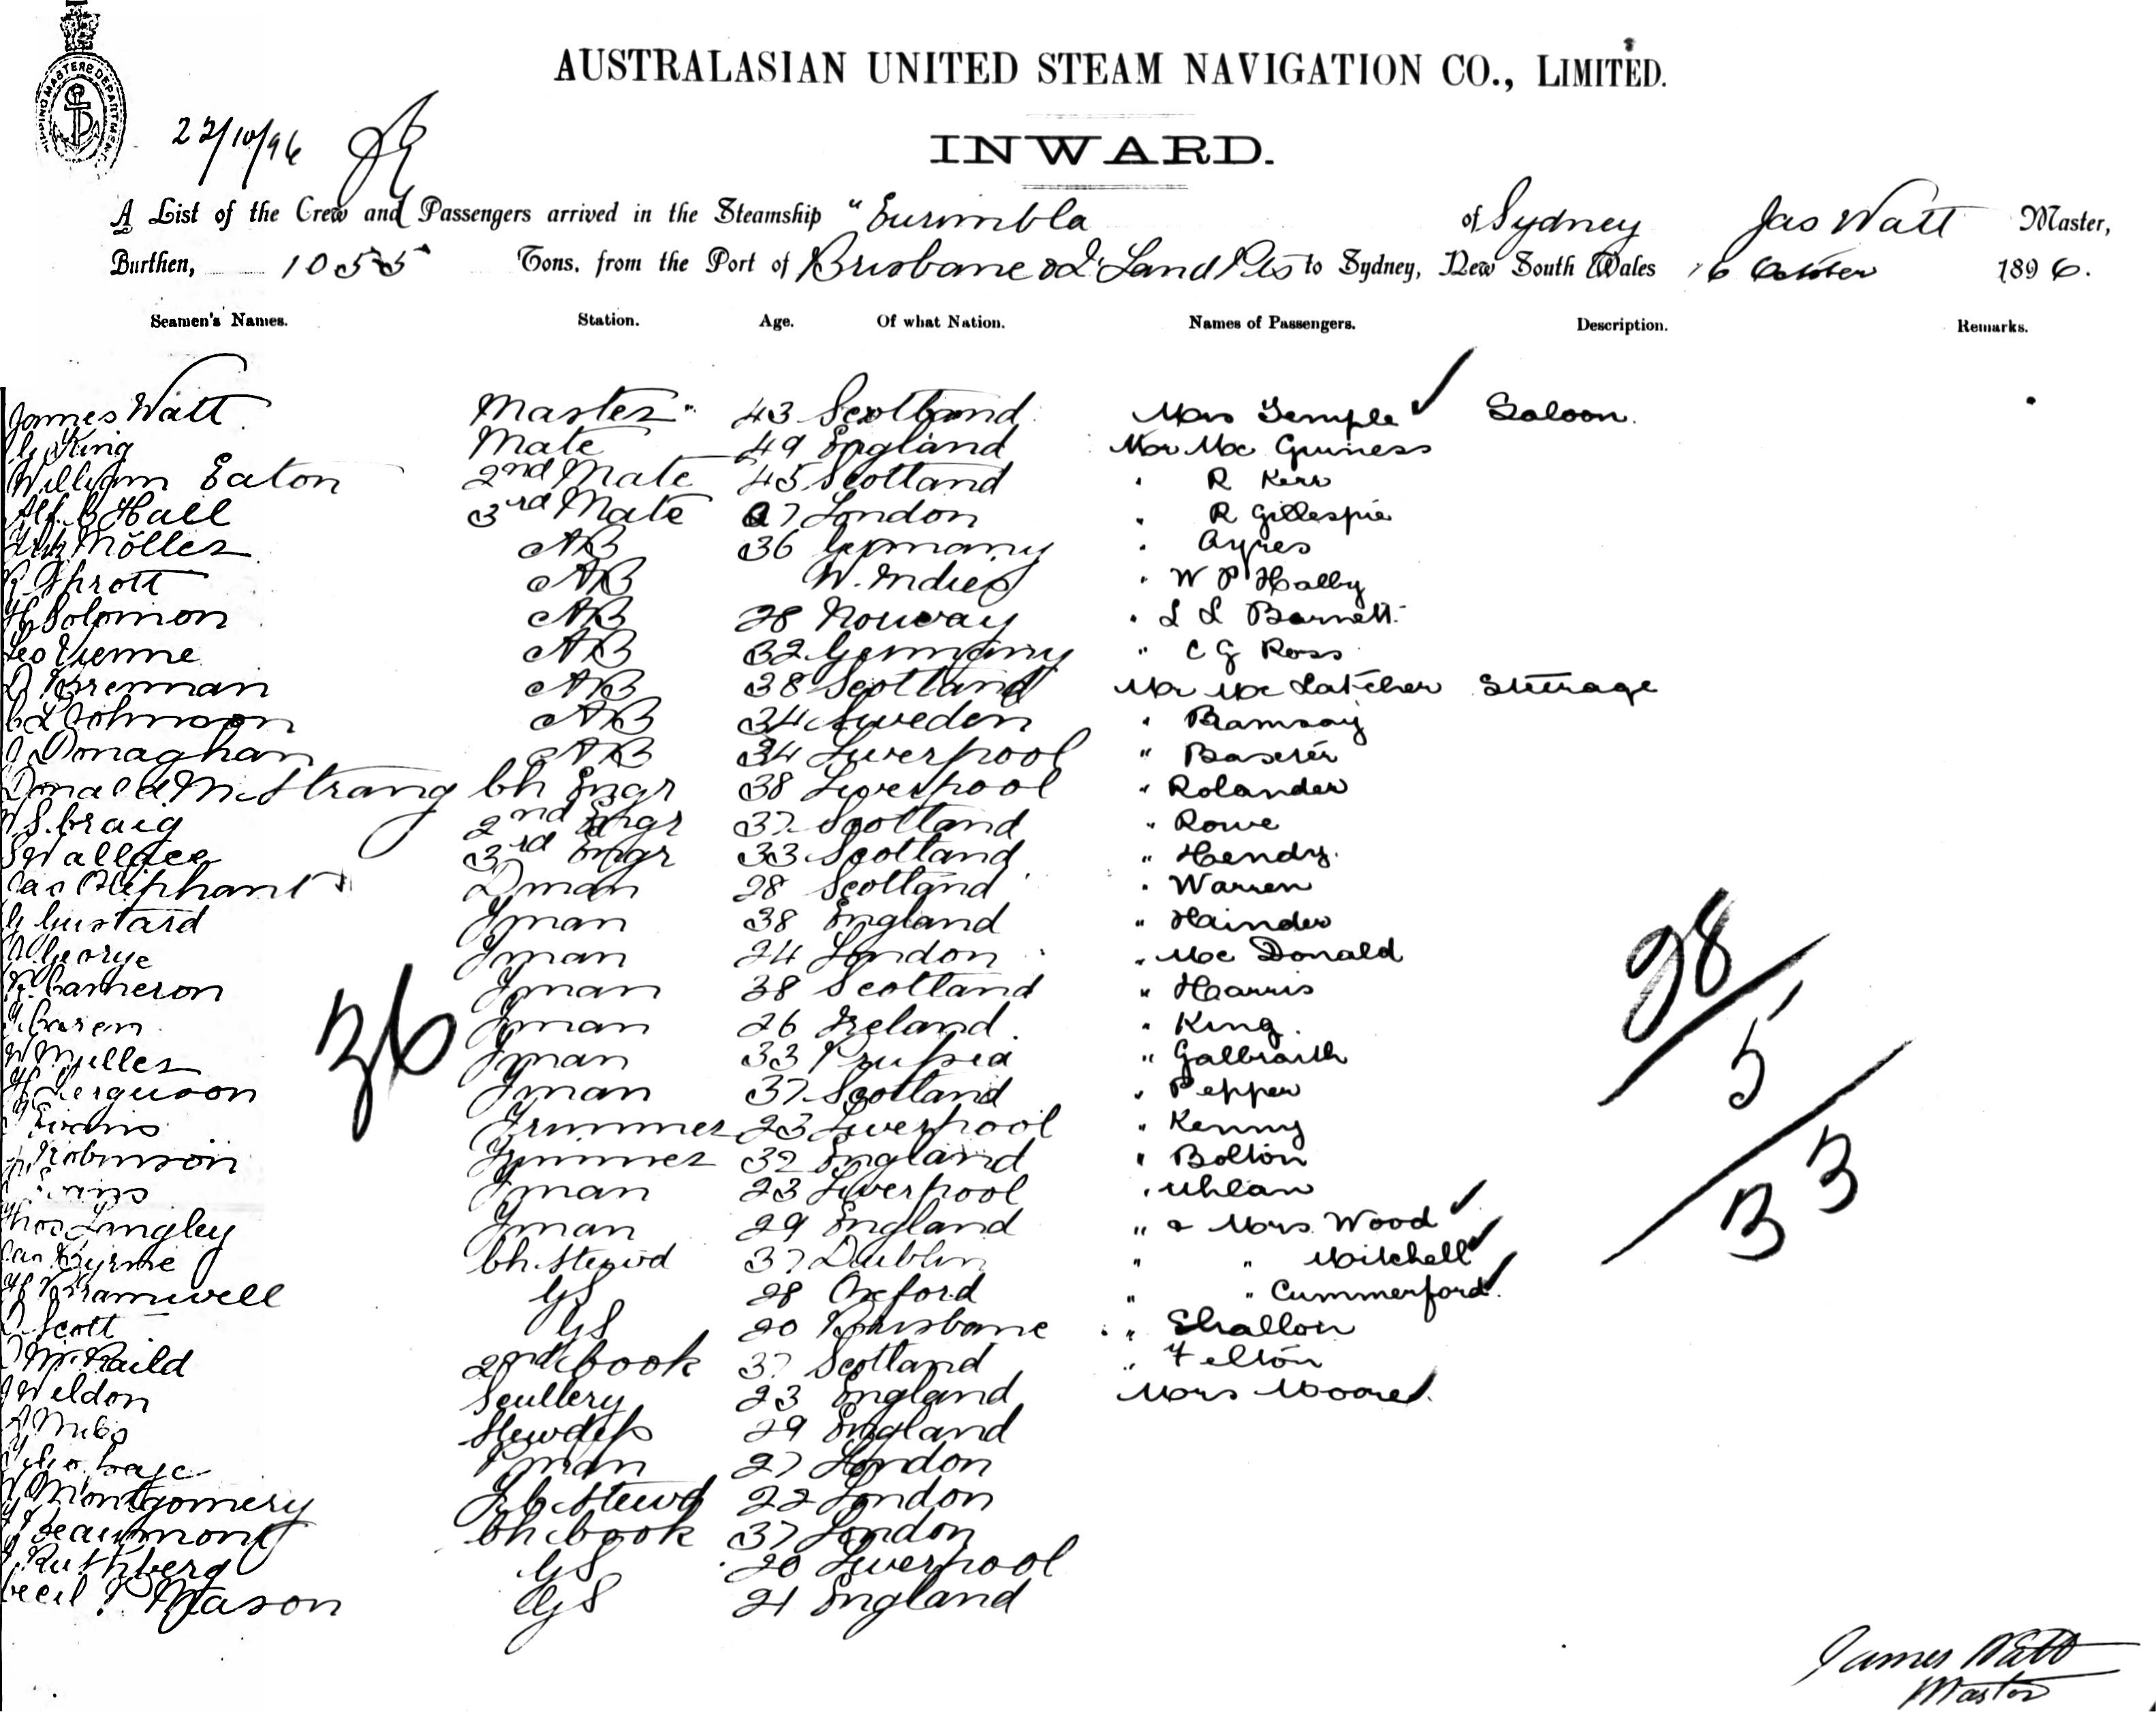 SHIPPING MASTERS DEPARTMENT
AUSTRALASIAN UNITED STEAM NAVIGATION CO., LIMITED.
22/10/96
INWARD.
A List of the Crew and Passengers arrived in the Steamship "Eurimbla of Sydney Jas Watt Master,
Burthen, 1055 Tons, from the Port of Brisbane & Q'Land Pts to Sydney, New South Wales 16 October 1896.
Seamen's Names. Station. Age. Of what Nation. Names of Passengers. Description. Remarks.
James Watt Master 43 Scotland Mrs Temple Saloon.
King Mate 49 England Mr Mc Guiness
William Eaton 2nd Mate 45 Scotland " R Kerr
Alf. B Hall 3rd Mate 27 London " R Gillespie
Möller AB 36 Germany " Ayres
AB W. Indies " W P Halby
H Solomon AB 28 Norway " L L Barnett
Leo AB 32 Germany " C G Ross
D Brennan AB 38 Scotland Mr Mc Latcher Steerage
C L Johnson AB 34 Sweden " Ramsay
J Donaghan AB 34 Liverpool "
Donald McStrang Ch Engr 38 Liverpool " Rolander
W S. Craig 2nd Engr 37 Scotland " Rowe
S Wallace 3rd Engr 33 Scotland " Hendy.
Jas Oliphant Dman 28 Scotland " Warren
G Gustard Fman 38 England " Hainder
A George Fman 24 London " Mc Donald
R Cameron Fman 38 Scotland " Harris
Fman 26 Ireland " King.
W Muller Fman 33 Prussia " Galbraith
H Ferguson Fman 37 Scotland " Pepper
Evans Trimmer 23 Liverpool " Kenny
Robinson Trimmer 32 England " Bolton
Evans Fman 23 Liverpool " Uhlan
Thos Langley Fman 29 England " & Mrs Wood
Jas Byrne Ch. Stewd 37 Dublin " " Mitchell
H Bramwell GS 28 Oxford " " Cummerford
J Scott GS 20 Brisbane " Shallow
J McRaild 2nd Cook 37 Scotland " Felton
J Weldon Scullery 23 England Mrs Moore
Stewdess 29 England
Pman 27 London
W Montgomery F.C. Stewd 22 London
Beaumont Ch Cook 37 London
Ruthberg GS 20 Liverpool
Cecil P. Mason GS 21 England
36
28
5
33
James Watt
Master